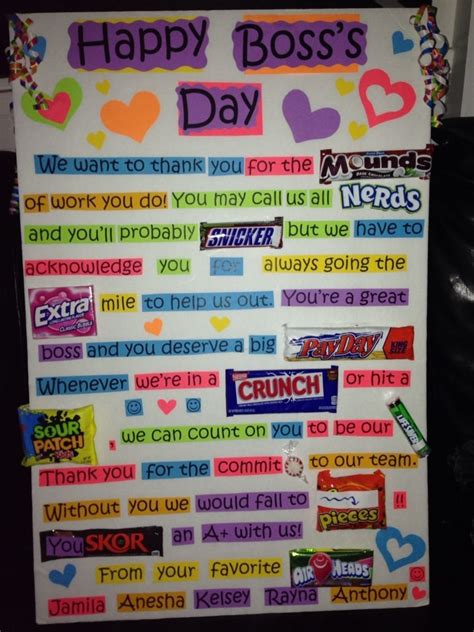 Happy Boss's
Day
We want to thank you for the Mounds
of work you do! You may call us all Nerds
and you'll probably SNICKER but we have to
acknowledge you for always going the
Extra mile to help us out. You're a great
boss and you deserve a big PayDay KING SIZE
Whenever we're in a CRUNCH or hit a
SOUR PATCH Kids, we can count on you to be our LIFESAVERS
Thank you for the commit to our team.
Without you we would fall to pieces!!
You SKOR an A+ with us!
From your favorite AIRHEADS
Jamila Anesha Kelsey Rayna Anthony